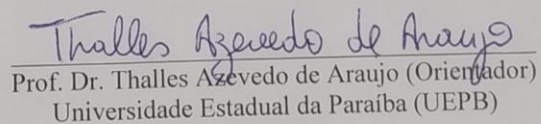 Thalles Azevedo de Araujo
Prof. Dr. Thalles Azevedo de Araujo (Orientador)
Universidade Estadual da Paraíba (UEPB)